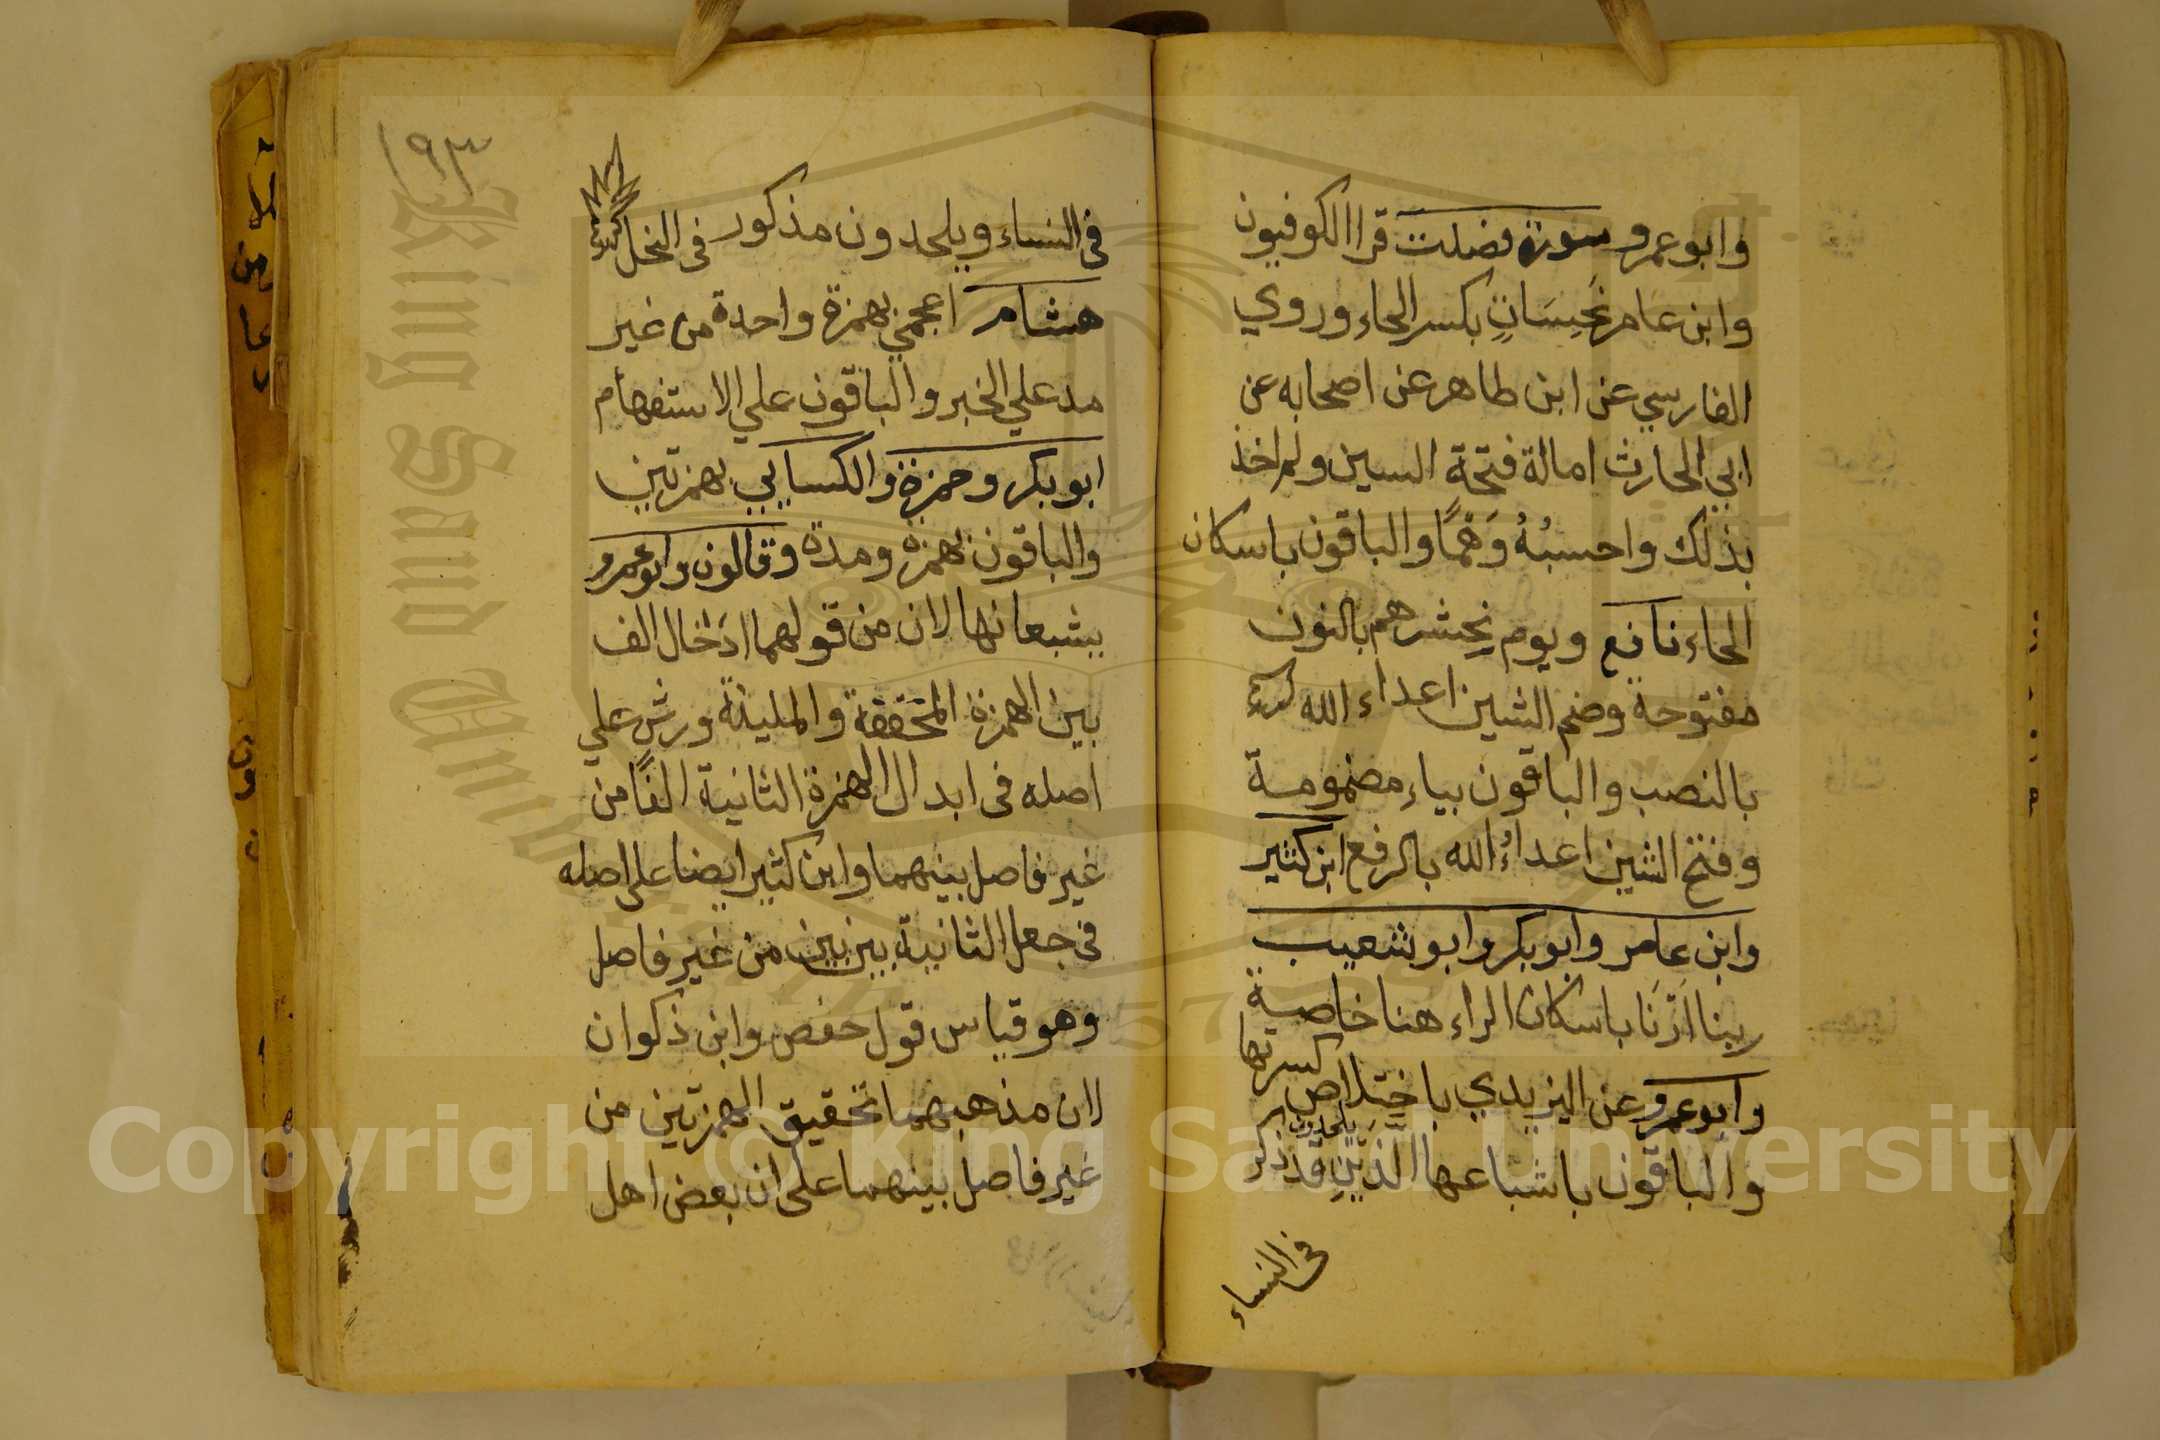 وابو عمرو سورة فصلت قرا الكوفيون
وابن عامر نَحِسَاتٍ بكسر الحاء وروي
الفارسي عن ابن طاهر عن اصحابه عن
ابي الحارث امالة فتحة السين ولم اخذ
بذلك واحسبُهُ وَهْمًا والباقون باسكان
الحاء نافع ويوم نحشرهم بالنون
مفتوحة وضم الشين اعداء الله
بالنصب والباقون بياء مضمومة
وفتح الشين اعداءُ الله بالرفع ابن كثير
وابن عامر وابو بكر وابو شعيب
ربنا اَرْنَا باسكان الراء هنا خاصة
وابو عمرو عن اليزيدي باختلاص كسرتها
والباقون باشباعها الَّذَيْنِ يلحدون قد ذكر
في النساء
١٩٣
في النساء ويلحدون مذكور في النحل
هشام اعجمي بهمزة واحدة من غير
مد علي الخبر والباقون علي الاستفهام
ابو بكر وحمزة والكسايي بهمزتين
والباقون بهمزه ومدة وقالون وابو عمرو
يشبعانها لان من قولهما ادخال الف
بين الهمزة المحققة والملينة ورش علي
اصله في ابدال الهمزة الثانية الفًا من
غير فاصل بينهما وابن كثير ايضا علي اصله
في جعل الثانية بين بين من غير فاصل
وهو قياس قول حفص وابن ذكوان
لان مذهبهما تحقيق الهمزتين من
غير فاصل بينهما علي ان بعض اهل
King Saud University
1957
Copyright © King Saud University